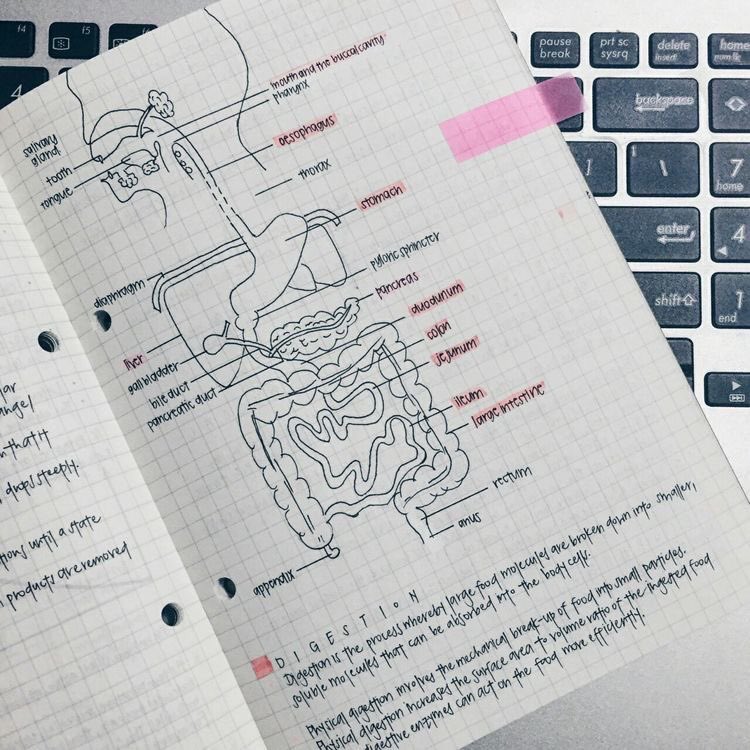 mouth and the buccal cavity
pharynx
oesophagus
thorax
stomach
pyloric sphincter
pancreas
duodunum
colon
jejunum
ileum
large intestine
rectum
anus
salivary
gland
tooth
tongue
diaphragm
liver
gall bladder
bile duct
pancreatic duct
appendix
DIGESTION
Digestion is the process whereby large food molecules are broken down into smaller,
soluble molecules that can be absorbed into the body cells.
Physical digestion involves the mechanical break-up of food into small particles.
Physical digestion increases the surface area to volume ratio of the ingested food
digestive enzymes can act on the food more efficiently.
angel
drops steeply.
until a state
products are removed
f4
f5
4
pause
break
prt sc
sysrq
delete
insert
home
num lk
backspace
]
\
7
home
enter
4
shift
1
end